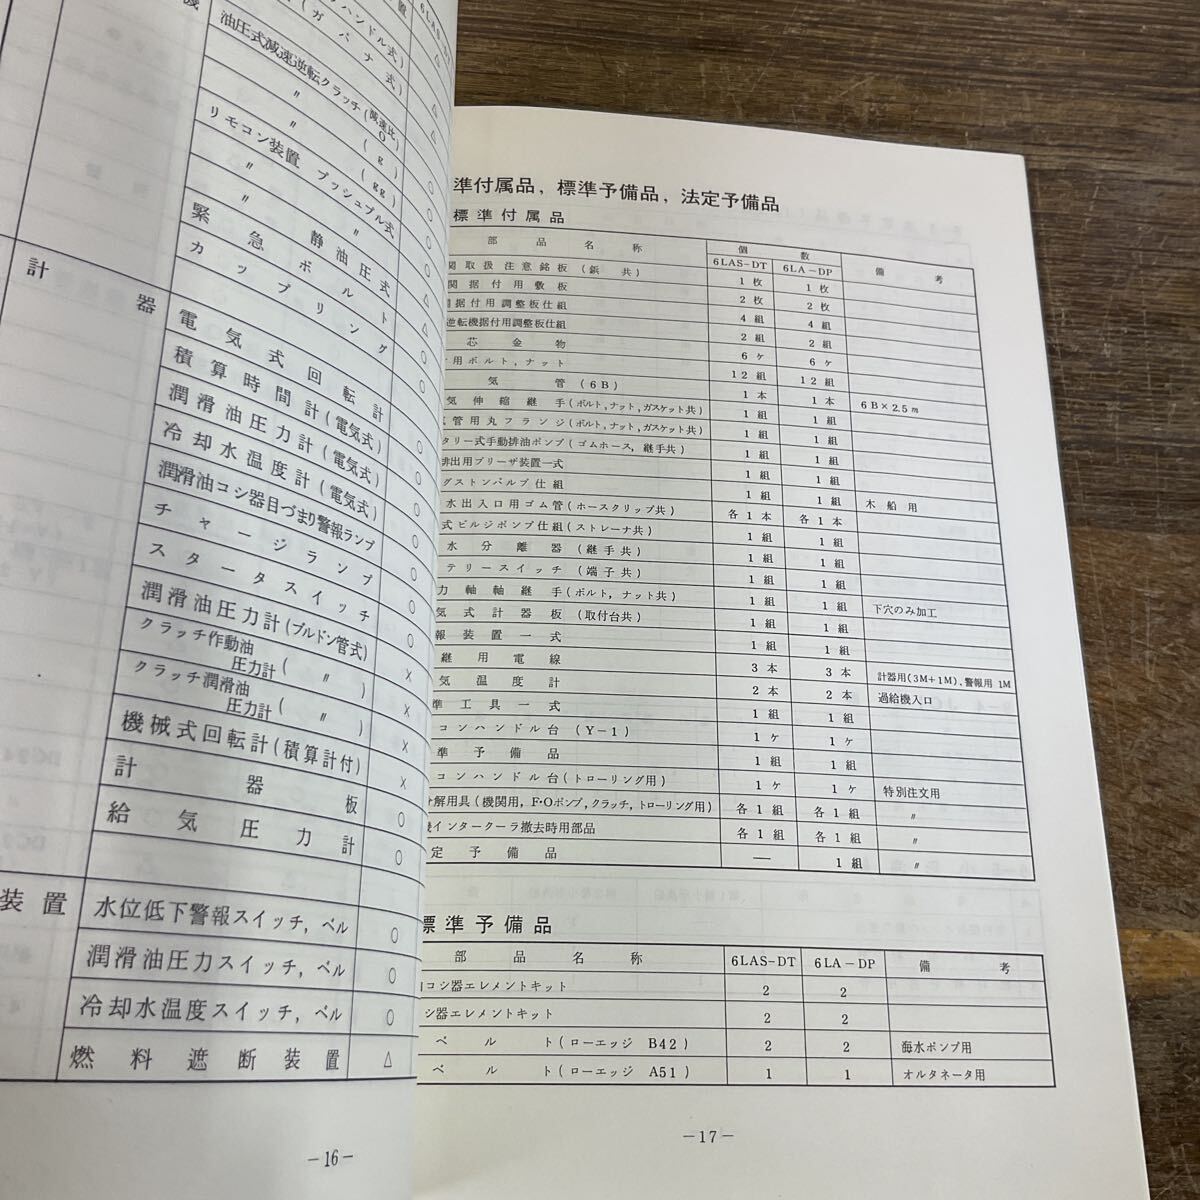 機
置
6LAS
ハンドル式)
(ガバナ式)
△
油圧式減速逆転クラッチ(減速比)
△
〃 (g)
〃 (gg)
○
リモコン装置 プッシュプル式
○
〃 〃
○
〃 静油圧式
△
緊急ボルト
△
カップリング
○
計器
電気式回転計
○
積算時間計(電気式)
○
潤滑油圧力計(電気式)
○
冷却水温度計(電気式)
○
潤滑油コシ器目づまり警報ランプ
○
チャージランプ
○
スタータスイッチ
○
潤滑油圧力計(ブルドン管式)
×
クラッチ作動油圧力計(〃)
×
クラッチ潤滑油圧力計(〃)
×
機械式回転計(積算計付)
×
計器板
○
給気圧力計
○
装置
水位低下警報スイッチ, ベル
○
潤滑油圧力スイッチ, ベル
○
冷却水温度スイッチ, ベル
○
燃料遮断装置
△
－16－
準付属品, 標準予備品, 法定予備品
標準付属品
部品名称 個数 備考
6LAS-DT 6LA－DP
関取扱注意銘板(鋲共) 1枚 1枚
関据付用敷板 2枚 2枚
関据付用調整板仕組 4組 4組
逆転機据付用調整板仕組 2組 2組
芯金物 6ヶ 6ヶ
用ボルト, ナット 12組 12組
気管(6B) 1本 1本 6B×2.5m
気伸縮継手(ボルト, ナット, ガスケット共) 1組 1組
管用丸フランジ(ボルト, ナット, ガスケット共) 1組 1組
タリー式手動排油ポンプ(ゴムホース, 継手共) 1組 1組
排出用ブリーザ装置一式 1組 1組
グストンバルブ仕組 1組 1組 木船用
水出入口用ゴム管(ホースクリップ共) 各1本 各1本
式ビルジポンプ仕組(ストレーナ共) 1組 1組
水分離器(継手共) 1組 1組
テリースイッチ(端子共) 1組 1組
力軸軸継手(ボルト, ナット共) 1組 1組 下穴のみ加工
気式計器板(取付台共) 1組 1組
報装置一式 1組 1組
継用電線 3本 3本 計器用(3M+1M), 警報用 1M
気温度計 2本 2本 過給機入口
準工具一式 1組 1組
コンハンドル台(Y-1) 1ヶ 1ヶ
準予備品 1組 1組
コンハンドル台(トローリング用) 1ヶ 1ヶ 特別注文用
分解用具(機関用, F・Oポンプ, クラッチ, トローリング用) 各1組 各1組 〃
機インタークーラ撤去時用部品 各1組 各1組 〃
定予備品 — 1組 〃
標準予備品
部品名称 6LAS-DT 6LA－DP 備考
コシ器エレメントキット 2 2
シ器エレメントキット 2 2
ベルト(ローエッジ B42) 2 2 海水ポンプ用
ベルト(ローエッジ A51) 1 1 オルタネータ用
－17－